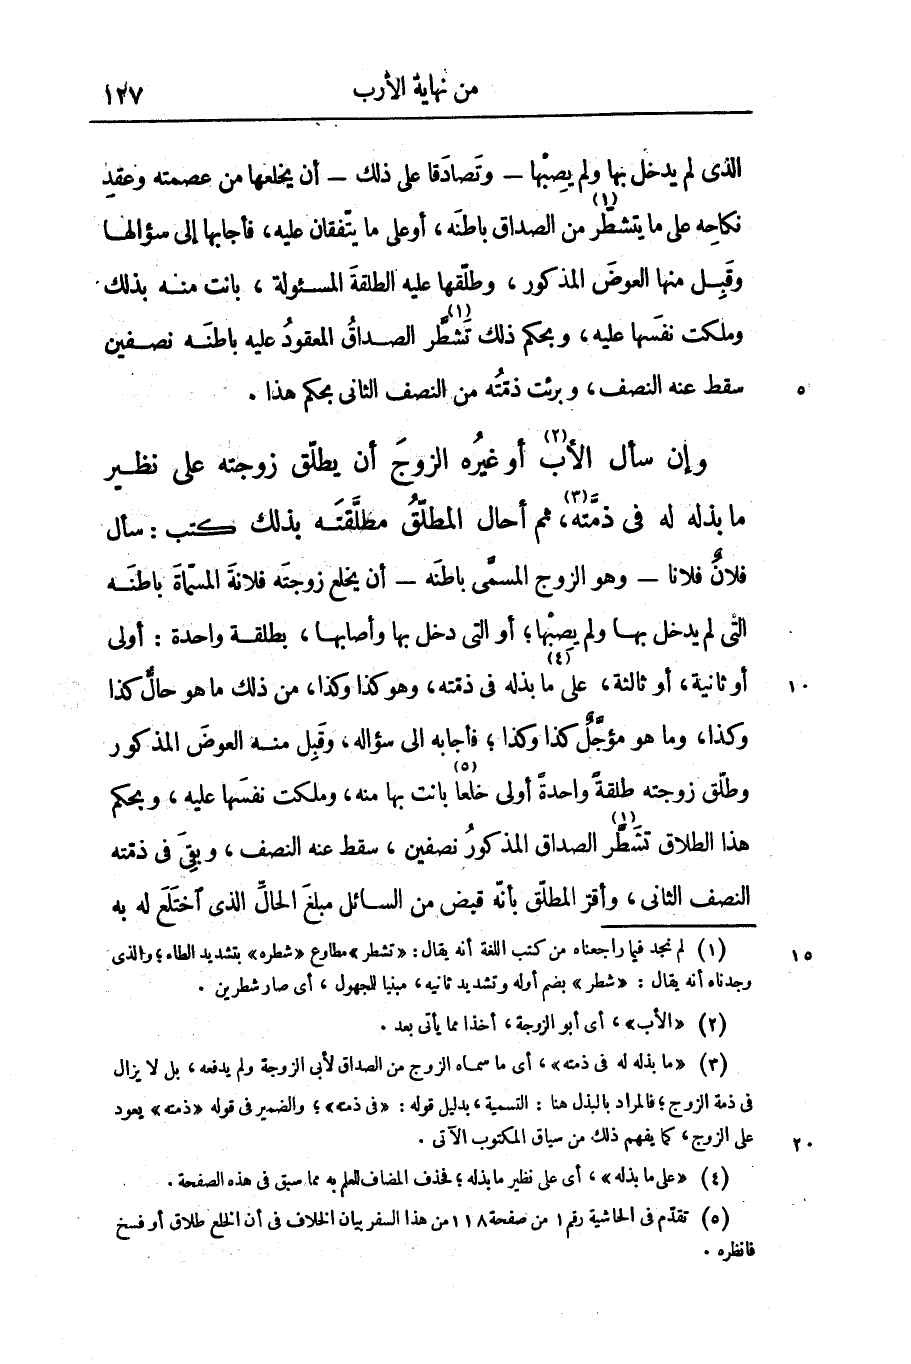 من نهاية الأرب ١٢٧
الذى لم يدخل بها ولم يصِبْها — وتَصادَقا على ذلك — أن يخلعها من عصمته وعقدِ
نكاحِه على ما يتشطّر (١) من الصداق باطنَه، أو على ما يتّفقان عليه، فأجابها إلى سؤالها
وقَبِل منها العوضَ المذكور، وطلّقها عليه الطلقةَ المسئولة، بانت منه بذلك
وملكت نفسَها عليه، وبحكم ذلك تَشطَّر (١) الصداقُ المعقودُ عليه باطنَه نصفين
سقط عنه النصف، وبرئت ذمّتُه من النصف الثانى بحكم هذا. ٥
وإن سأل الأب (٢) أو غيرُه الزوجَ أن يطلّق زوجته على نظير
ما بذله له فى ذمّته (٣)، ثم أحال المطلّقُ مطلَّقتَه بذلك كتب: سأل
فلانٌ فلانا — وهو الزوج المسمَّى باطنَه — أن يخلع زوجتَه فلانةَ المسمّاةَ باطنَه
التى لم يدخل بها ولم يصبْها؛ أو التى دخل بها وأصابها، بطلقة واحدة: أولى
أو ثانية، أو ثالثة، على ما بذله (٤) فى ذمّته، وهو كذا وكذا، من ذلك ما هو حالٌّ كذا ١٠
وكذا، وما هو مؤجَّلٌ كذا وكذا؛ فأجابه الى سؤاله، وقَبِل منه العوضَ المذكور
وطلّق زوجته طلقةً واحدةً أولى خلعا (٥) بانت بها منه، وملكت نفسَها عليه، وبحكم
هذا الطلاق تشَطَّر (١) الصداق المذكورُ نصفين، سقط عنه النصف، وبقِىَ فى ذمّته
النصف الثانى، وأقرّ المطلّق بأنّه قبض من السائل مبلغَ الحالِّ الذى اختَلَعَ له به
(١) لم نجد فيما راجعناه من كتب اللغة أنه يقال: «تشطر» مطاوع «شطره» بتشديد الطاء؛ والذى ١٥
وجدناه أنه يقال: «شطر» بضم أوله وتشديد ثانيه، مبنيا للجهول، أى صار شطرين.
(٢) «الأب»، أى أبو الزوجة، أخذا مما يأتى بعد.
(٣) «ما بذله له فى ذمته»، أى ما سماه الزوج من الصداق لأبى الزوجة ولم يدفعه، بل لا يزال
فى ذمة الزوج؛ فالمراد بالبذل هنا: التسمية، بدليل قوله: «فى ذمته»؛ والضمير فى قوله «ذمته» يعود
على الزوج، كما يفهم ذلك من سياق المكتوب الآتى. ٢٠
(٤) «على ما بذله»، أى على نظير ما بذله؛ فحذف المضاف للعلم به مما سبق فى هذه الصفحة.
(٥) تقدّم فى الحاشية رقم ١ من صفحة ١١٨ من هذا السفر بيان الخلاف فى أن الخلع طلاق أو فسخ
فانظره.